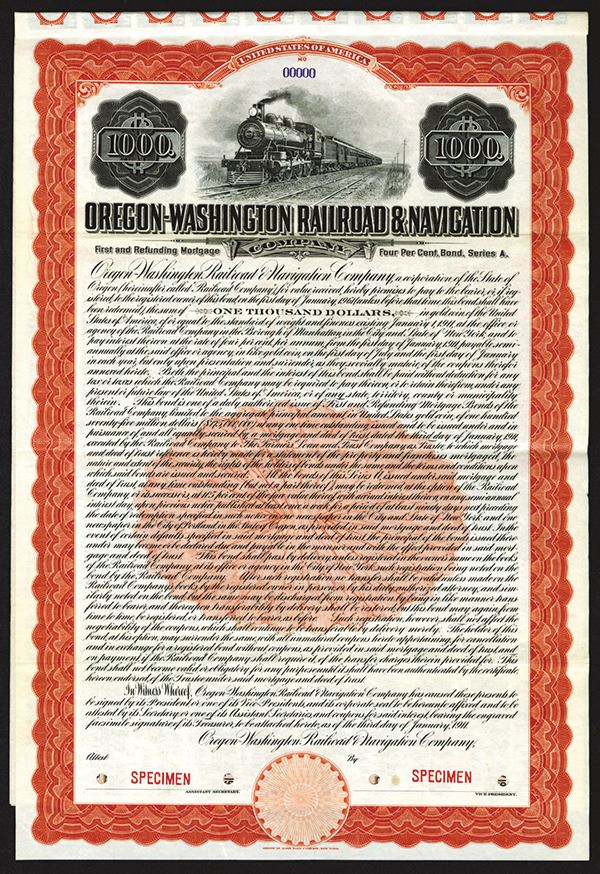 UNITED STATES OF AMERICA
No
00000
1000. 1000.
OREGON-WASHINGTON RAILROAD & NAVIGATION
COMPANY
First and Refunding Mortgage Four Per Cent. Bond, Series A.
Oregon-Washington Railroad & Navigation Company, a corporation of the State of
Oregon (hereinafter called Railroad Company), for value received, hereby promises to pay to the bearer, or if reg-
istered, to the registered owner of this bond, on the first day of January, 1961 (unless before that time this bond shall have
been redeemed), the sum of ONE THOUSAND DOLLARS, in gold coin of the United
States of America, of or equal to the standard of weight and fineness existing January 1, 1911, at the office or
agency of the Railroad Company in the Borough of Manhattan, in the City and State of New York, and to
pay interest thereon at the rate of four per cent. per annum, from the first day of January, 1911, payable semi-
annually at the said office or agency, in like gold coin, on the first day of July and the first day of January
in each year, but only upon presentation and surrender, as they severally mature, of the coupons therefor
annexed hereto. Both the principal and the interest of this bond shall be paid without deduction for any
tax or taxes which the Railroad Company may be required to pay thereon, or to retain therefrom, under any
present or future law of the United States of America, or of any state, territory, county or municipality
therein. This bond is one of a duly authorized issue of First and Refunding Mortgage Bonds of the
Railroad Company, limited to the aggregate principal amount in United States gold coin, of one hundred
seventy-five million dollars ($175,000,000) at any one time outstanding, issued and to be issued under and in
pursuance of, and all equally secured by, a mortgage and deed of trust dated the third day of January, 1911,
executed by the Railroad Company to The Farmers' Loan and Trust Company, as Trustee, to which mortgage
and deed of trust reference is hereby made for a statement of the property and franchises mortgaged, the
nature and extent of the security, the rights of the holders of bonds under the same and the terms and conditions upon
which said bonds are issued and secured. All the bonds of this Series A issued under said mortgage and
deed of trust, at any time outstanding (but not a part thereof), may be redeemed at the option of the Railroad
Company, or its successors, at 105 per cent. of the face value thereof, with accrued interest thereon, on any semi-annual
interest day, upon previous notice published at least once a week for a period of at least ninety days next preceding
the date of redemption specified in such notice, in one newspaper in the City and State of New York and one
newspaper in the City of Portland in the State of Oregon, as provided in said mortgage and deed of trust. In the
event of certain defaults specified in said mortgage and deed of trust, the principal of the bonds issued there-
under may become or be declared due and payable in the manner and with the effect provided in said mort-
gage and deed of trust. This bond shall pass by delivery, unless registered in the owner's name on the books
of the Railroad Company at its office or agency in the City of New York, such registration being noted on the
bond by the Railroad Company. After such registration no transfer shall be valid unless made on the
Railroad Company's books by the registered owner in person, or by his duly authorized attorney, and sim-
ilarly noted on the bond; but the same may be discharged from registration by being in like manner trans-
ferred to bearer, and thereupon transferability by delivery shall be restored; and this bond may again, from
time to time, be registered, or transferred to bearer, as before. Such registration, however, shall not affect the
negotiability of the coupons, which shall continue to be transferable by delivery merely. The holder of this
bond, at his option, may surrender the same, with all unmatured coupons hereto appertaining, for cancellation
and in exchange for a registered bond without coupons, as provided in said mortgage and deed of trust, and
on payment, if the Railroad Company shall require it, of the transfer charges therein provided for. This
bond shall not become valid or obligatory for any purpose until it shall have been authenticated by the certificate
hereon endorsed, of the Trustee under said mortgage and deed of trust.
In Witness Whereof, Oregon-Washington Railroad & Navigation Company has caused these presents to
be signed by its President or one of its Vice-Presidents, and its corporate seal to be hereunto affixed and to be
attested by its Secretary or one of its Assistant Secretaries, and coupons for said interest, bearing the engraved
facsimile signature of its Treasurer, to be attached hereto, as of the third day of January, 1911.
Oregon-Washington Railroad & Navigation Company,
Attest By
SPECIMEN SPECIMEN
ASSISTANT SECRETARY. VICE-PRESIDENT.